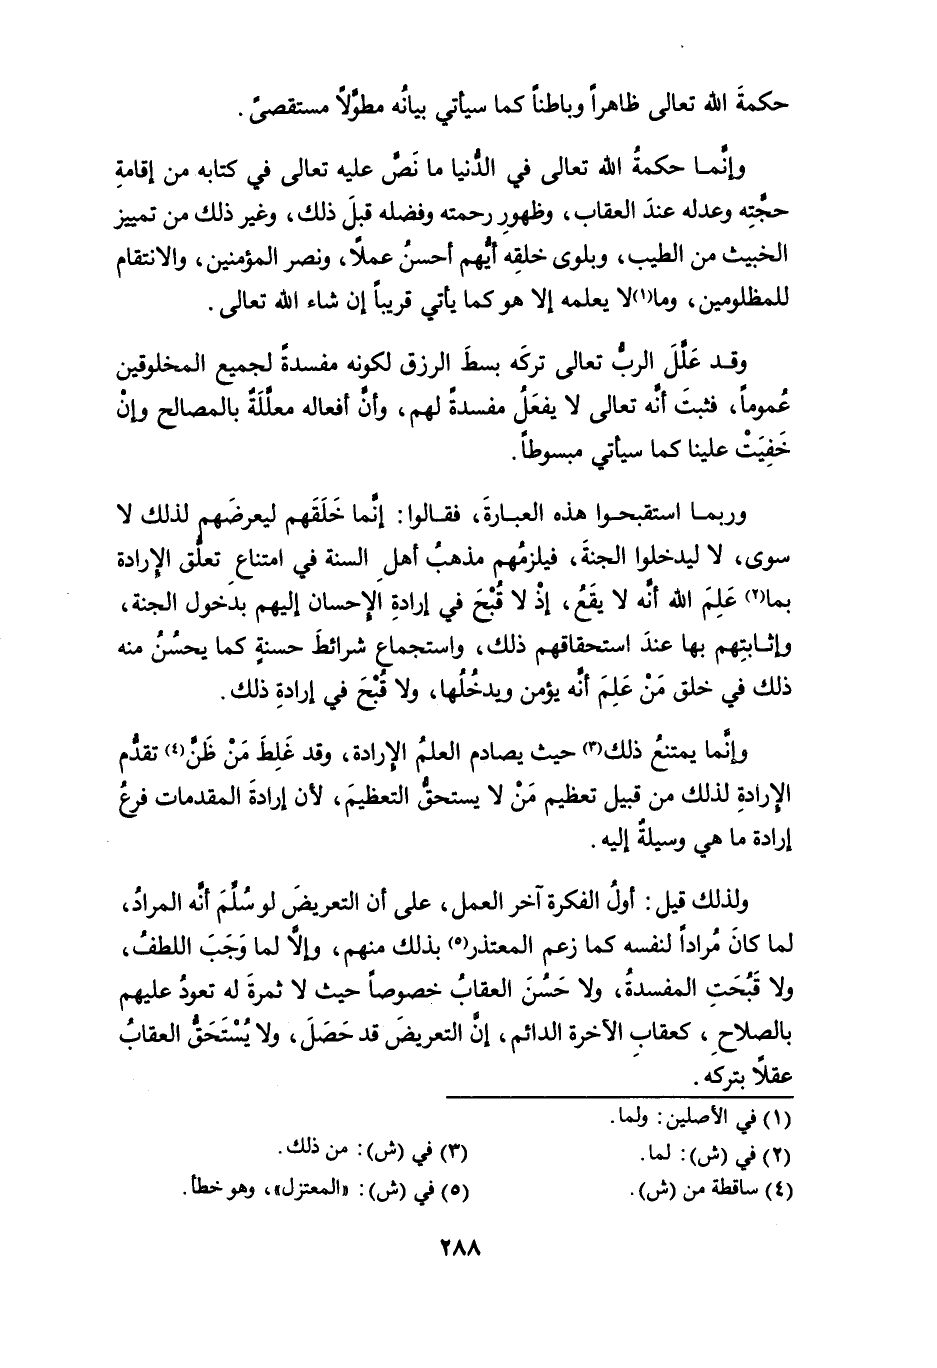 حكمةَ الله تعالى ظاهراً وباطناً كما سيأتي بيانُه مطوَّلاً مستقصىً .
وإنَّما حكمةُ الله تعالى في الدُّنيا ما نَصَّ عليه تعالى في كتابه من إقامةِ
حجَّتِه وعدله عندَ العقاب، وظهورِ رحمته وفضله قبلَ ذلك، وغير ذلك من تمييز
الخبيث من الطيب، وبلوى خلقِه أيُّهم أحسنُ عملًا، ونصر المؤمنين، والانتقام
للمظلومين، وما(١) لا يعلمه إلا هو كما يأتي قريباً إن شاء الله تعالى .
وقد عَلَّلَ الربُّ تعالى تركَه بسطَ الرزق لكونه مفسدةً لجميع المخلوقين
عُموماً، فثبتَ أنَّه تعالى لا يفعَلُ مفسدةً لهم، وأنَّ أفعاله معلَّلَةٌ بالمصالح وإنْ
خَفِيَتْ علينا كما سيأتي مبسوطاً.
وربما استقبحوا هذه العبارةَ، فقالوا: إنَّما خَلَقَهم ليعرضَهم لذلك لا
سوى، لا ليدخلوا الجنةَ، فيلزمُهم مذهبُ أهلِ السنة في امتناعِ تعلُّق الإرادة
بما(٢) عَلِمَ الله أنَّه لا يقَعُ، إذْ لا قُبْحَ في إرادةِ الإِحسان إليهم بدخول الجنة،
وإثابتِهم بها عندَ استحقاقهم ذلك، واستجماع شرائطَ حسنةٍ كما يحسُنُ منه
ذلك في خلق مَنْ عَلِمَ أنَّه يؤمن ويدخُلُها، ولا قُبْحَ في إرادةِ ذلك.
وإنَّما يمتنعُ ذلك(٣) حيث يصادم العلمُ الإرادة، وقد غَلِطَ مَنْ ظَنَّ(٤) تقدُّم
الإرادةِ لذلك من قبيل تعظيم مَنْ لا يستحقُّ التعظيمَ، لأن إرادةَ المقدمات فرعُ
إرادة ما هي وسيلةٌ إليه .
ولذلك قيل: أولُ الفكرة آخر العمل، على أن التعريضَ لو سُلِّمَ أنَّه المرادُ،
لما كانَ مُراداً لنفسه كما زعم المعتذر(٥) بذلك منهم، وإلَّا لما وَجَبَ اللطفُ،
ولا قَبُحَتِ المفسدةُ، ولا حَسُنَ العقابُ خصوصاً حيث لا ثمرةَ له تعودُ عليهم
بالصلاحِ، كعقابِ الآخرة الدائم، إنَّ التعريضَ قد حَصَلَ، ولا يُسْتَحَقُّ العقابُ
عقلًا بتركه .
(١) في الأصلين: ولما.
(٢) في (ش): لما.
(٣) في (ش): من ذلك.
(٤) ساقطة من (ش).
(٥) في (ش): «المعتزل»، وهو خطأ.
٢٨٨